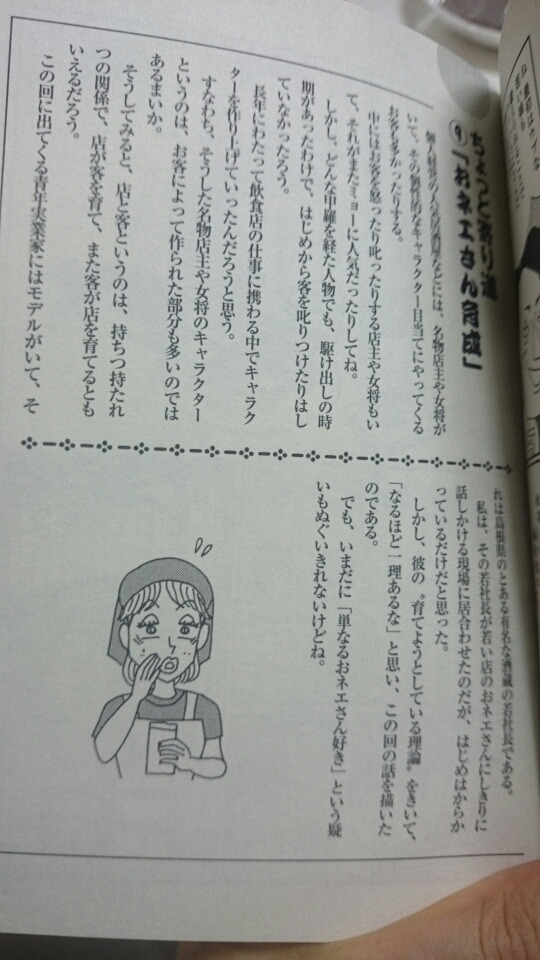 ちょっと寄り道
⑨「おネエさん育成」
個人経営の人気居酒屋などには、名物店主や女将が
いて、その個性的なキャラクター目当てにやってくる
お客も多かったりする。
中にはお客を怒ったり叱ったりする店主や女将もい
て、それがまたミョーに人気だったりしてね。
しかし、どんな甲羅を経た人物でも、駆け出しの時
期があったわけで、はじめから客を叱りつけたりはし
ていなかったろう。
長年にわたって飲食店の仕事に携わる中でキャラク
ターを作り上げていったんだろうと思う。
すなわち、そうした名物店主や女将のキャラクター
というのは、お客によって作られた部分も多いのでは
あるまいか。
そうしてみると、店と客というのは、持ちつ持たれ
つの関係で、店が客を育て、また客が店を育てるとも
いえるだろう。
この回に出てくる青年実業家にはモデルがいて、そ
れは島根県のとある有名な酒蔵の若社長である。
私は、その若社長が若い店のおネエさんにしきりに
話しかける現場に居合わせたのだが、はじめはからか
っているだけだと思った。
しかし、彼の〝育てようとしている理論〟をきいて、
「なるほど一理あるな」と思い、この回の話を描いた
のである。
でも、いまだに「単なるおネエさん好き」という疑
いもぬぐいきれないけどね。